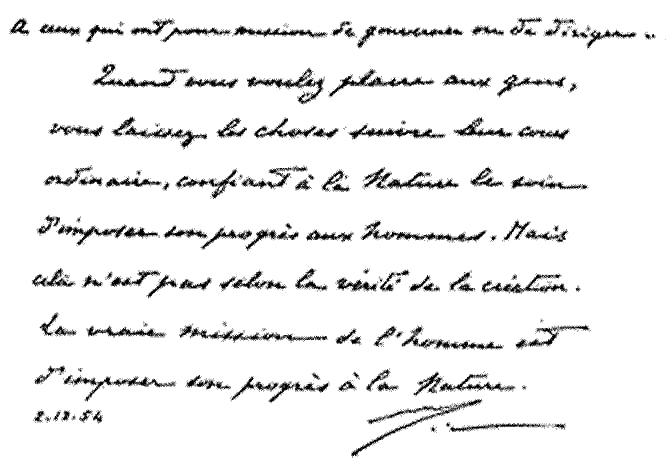 A ceux qui ont pour mission de gouverner ou de diriger..
Quand vous voulez plaire aux gens,
vous laissez les choses suivre leur cours
ordinaire, confiant à la Nature le soin
d'imposer son progrès aux hommes. Mais
cela n'est pas selon la vérité de la création.
La vraie mission de l'homme est
d'imposer son progrès à la Nature.
2.12.54